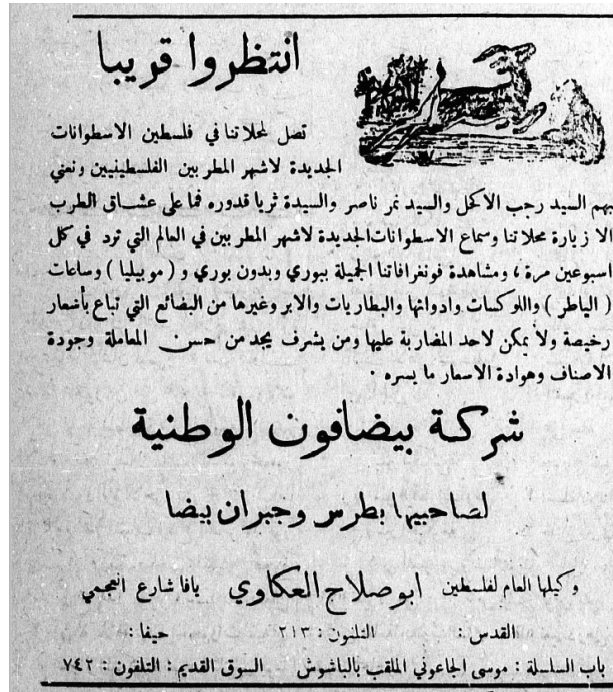 انتظروا قريبا
تصل لمحلاتنا في فلسطين الاسطوانات
الجديدة لاشهر المطربين الفلسطينيين ونعني
بهم السيد رجب الاكحل والسيد نمر ناصر والسيدة ثريا قدوره فما على عشاق الطرب
الا زيارة محلاتنا وسماع الاسطوانات الجديدة لاشهر المطربين في العالم التي ترد في كل
اسبوعين مرة ، ومشاهدة فونغرافاتنا الجميلة ببوري وبدون بوري و ( موبيليا ) وساعات
( الياطر ) واللوكسات وادواتها والبطاريات والابر وغيرها من البضائع التي تباع بأسعار
رخيصة ولا يمكن لاحد المضاربة عليها ومن يشرف يجد من حسن المعاملة وجودة
الاصناف وهوادة الاسعار ما يسره .
شركة بيضافون الوطنية
لصاحبيها بطرس وجبران بيضا
وكيلها العام لفلسطين ابو صلاح العكاوي يافا شارع العجمي
القدس : التلفون : ٢١٣ حيفا :
باب السلسلة : موسى الجاعوني الملقب بالباشوش السوق القديم : التلفون : ٧٤٢